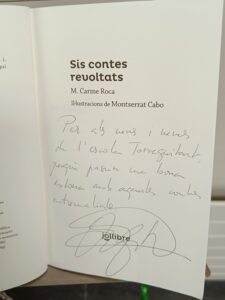 Sis contes
revoltats
M. Carme Roca
Il·lustracions de Montserrat Cabo
Per als nens i nenes
de l'escola Torreguitart,
perquè passin una bona
estona amb aquests contes
jollibre